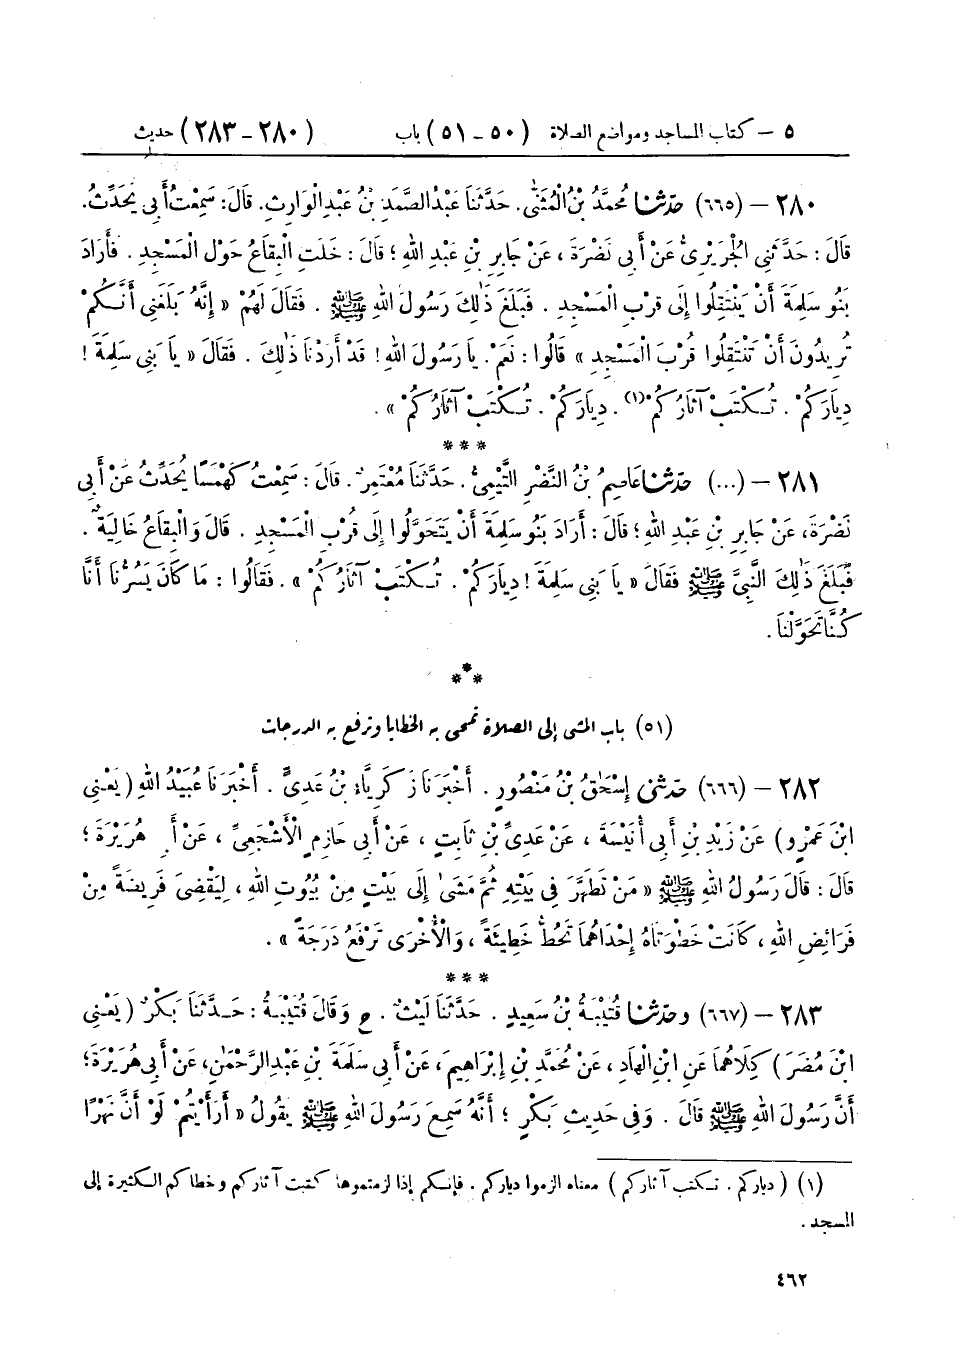 ٥ – كتاب المساجد ومواضع الصلاة (٥٠ - ٥١) باب (٢٨٠ - ٢٨٣) حديث
٢٨٠ – (٦٦٥) حَدَّثَنَا مُحَمَّدُ بْنُ الْمُثَنَّى. حَدَّثَنَا عَبْدُ الصَّمَدِ بْنُ عَبْدِ الْوَارِثِ. قَالَ: سَمِعْتُ أَبِي يُحَدِّثُ.
قَالَ: حَدَّثَنِي الْجُرَيْرِيُّ عَنْ أَبِي نَضْرَةَ، عَنْ جَابِرِ بْنِ عَبْدِ اللهِ؛ قَالَ: خَلَتِ الْبِقَاعُ حَوْلَ الْمَسْجِدِ. فَأَرَادَ
بَنُو سَلِمَةَ أَنْ يَنْتَقِلُوا إِلَى قُرْبِ الْمَسْجِدِ. فَبَلَغَ ذَٰلِكَ رَسُولَ اللهِ ﷺ. فَقَالَ لَهُمْ « إِنَّهُ بَلَغَنِي أَنَّكُمْ
تُرِيدُونَ أَنْ تَنْتَقِلُوا قُرْبَ الْمَسْجِدِ » قَالُوا: نَعَمْ. يَا رَسُولَ اللهِ! قَدْ أَرَدْنَا ذَٰلِكَ. فَقَالَ « يَا بَنِي سَلِمَةَ!
دِيَارَكُمْ. تُكْتَبْ آثَارُكُمْ(١). دِيَارَكُمْ. تُكْتَبْ آثَارُكُمْ ».
***
٢٨١ – (...) حَدَّثَنَا عَاصِمُ بْنُ النَّضْرِ التَّيْمِيُّ. حَدَّثَنَا مُعْتَمِرٌ. قَالَ: سَمِعْتُ كَهْمَسًا يُحَدِّثُ عَنْ أَبِي
نَضْرَةَ، عَنْ جَابِرِ بْنِ عَبْدِ اللهِ؛ قَالَ: أَرَادَ بَنُو سَلِمَةَ أَنْ يَتَحَوَّلُوا إِلَى قُرْبِ الْمَسْجِدِ. قَالَ وَالْبِقَاعُ خَالِيَةٌ.
فَبَلَغَ ذَٰلِكَ النَّبِيَّ ﷺ فَقَالَ « يَا بَنِي سَلِمَةَ! دِيَارَكُمْ. تُكْتَبْ آثَارُكُمْ ». فَقَالُوا: مَا كَانَ يَسُرُّنَا أَنَّا
كُنَّا تَحَوَّلْنَا.
***
(٥١) باب المشي إلى الصلاة تمحى به الخطايا وترفع به الدرجات
٢٨٢ – (٦٦٦) حَدَّثَنِي إِسْحَٰقُ بْنُ مَنْصُورٍ. أَخْبَرَنَا زَكَرِيَّاءُ بْنُ عَدِيٍّ. أَخْبَرَنَا عُبَيْدُ اللهِ (يَعْنِي
ابْنَ عَمْرٍو) عَنْ زَيْدِ بْنِ أَبِي أُنَيْسَةَ، عَنْ عَدِيِّ بْنِ ثَابِتٍ، عَنْ أَبِي حَازِمٍ الْأَشْجَعِيِّ، عَنْ أَبِي هُرَيْرَةَ؛
قَالَ: قَالَ رَسُولُ اللهِ ﷺ « مَنْ تَطَهَّرَ فِي بَيْتِهِ ثُمَّ مَشَىٰ إِلَى بَيْتٍ مِنْ بُيُوتِ اللهِ، لِيَقْضِيَ فَرِيضَةً مِنْ
فَرَائِضِ اللهِ، كَانَتْ خَطْوَتَاهُ إِحْدَاهُمَا تَحُطُّ خَطِيئَةً، وَالْأُخْرَى تَرْفَعُ دَرَجَةً ».
***
٢٨٣ – (٦٦٧) وحَدَّثَنَا قُتَيْبَةُ بْنُ سَعِيدٍ. حَدَّثَنَا لَيْثٌ. ح وَقَالَ قُتَيْبَةُ: حَدَّثَنَا بَكْرٌ (يَعْنِي
ابْنَ مُضَرَ) كِلَاهُمَا عَنِ ابْنِ الْهَادِ، عَنْ مُحَمَّدِ بْنِ إِبْرَاهِيمَ، عَنْ أَبِي سَلَمَةَ بْنِ عَبْدِ الرَّحْمَٰنِ، عَنْ أَبِي هُرَيْرَةَ؛
أَنَّ رَسُولَ اللهِ ﷺ قَالَ. وَفِي حَدِيثِ بَكْرٍ؛ أَنَّهُ سَمِعَ رَسُولَ اللهِ ﷺ يَقُولُ « أَرَأَيْتُمْ لَوْ أَنَّ نَهْرًا
(١) (دياركم. تكتب آثاركم) معناه الزموا دياركم. فإنكم إذا لزمتموها كتبت آثاركم وخطاكم الكثيرة إلى
المسجد.
٤٦٢